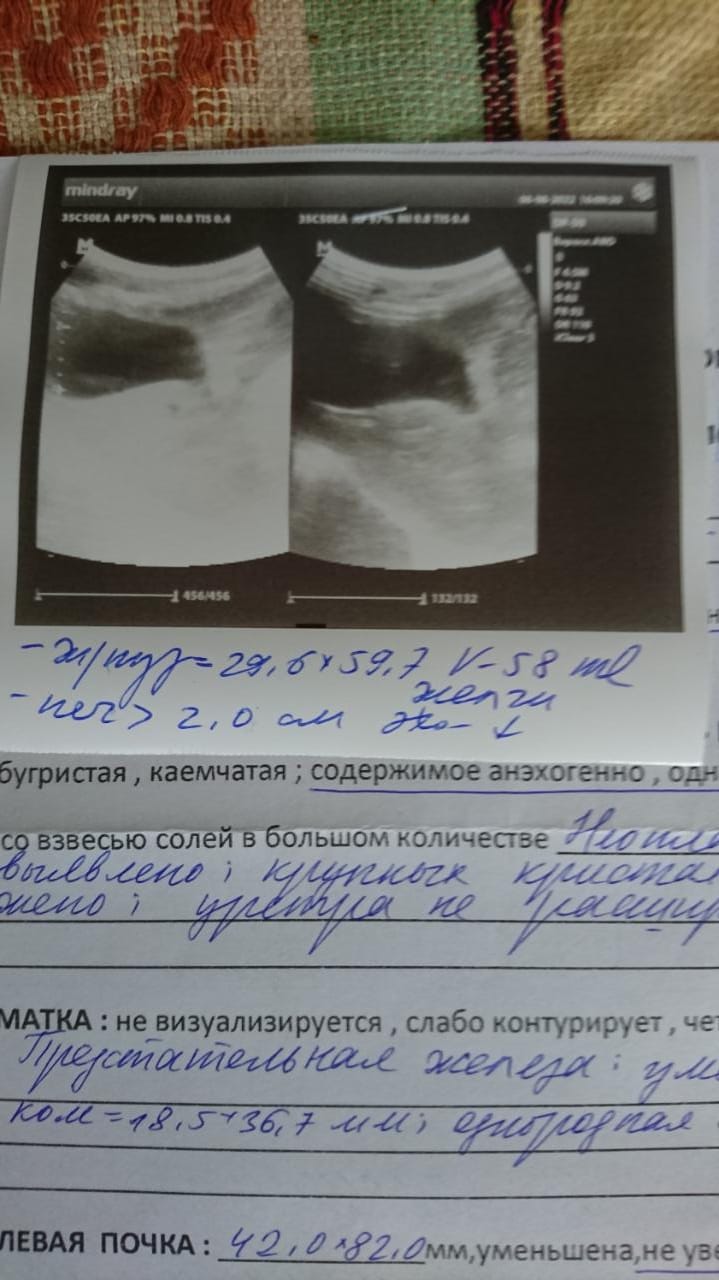 mindray
35C50EA AP 97% MI 0.8 TIS 0.4 35C50EA AP 97% MI 0.8 TIS 0.4
456/456 132/132
- ж/пуз= 29,6×59,7 V-58 ml
желчи
- печ > 2,0 см эхо- ↓
бугристая , каемчатая ; содержимое анэхогенно , одн
со взвесью солей в большом количестве Неопла
выявлено ; крупных кристал
жено ; уретра не расшир
МАТКА : не визуализируется , слабо контурирует , чет
Предстательная железа : ум
ком=18,5×36,7 мм; однородная
ЛЕВАЯ ПОЧКА : 42,0×82,0 мм,уменьшена,не уве